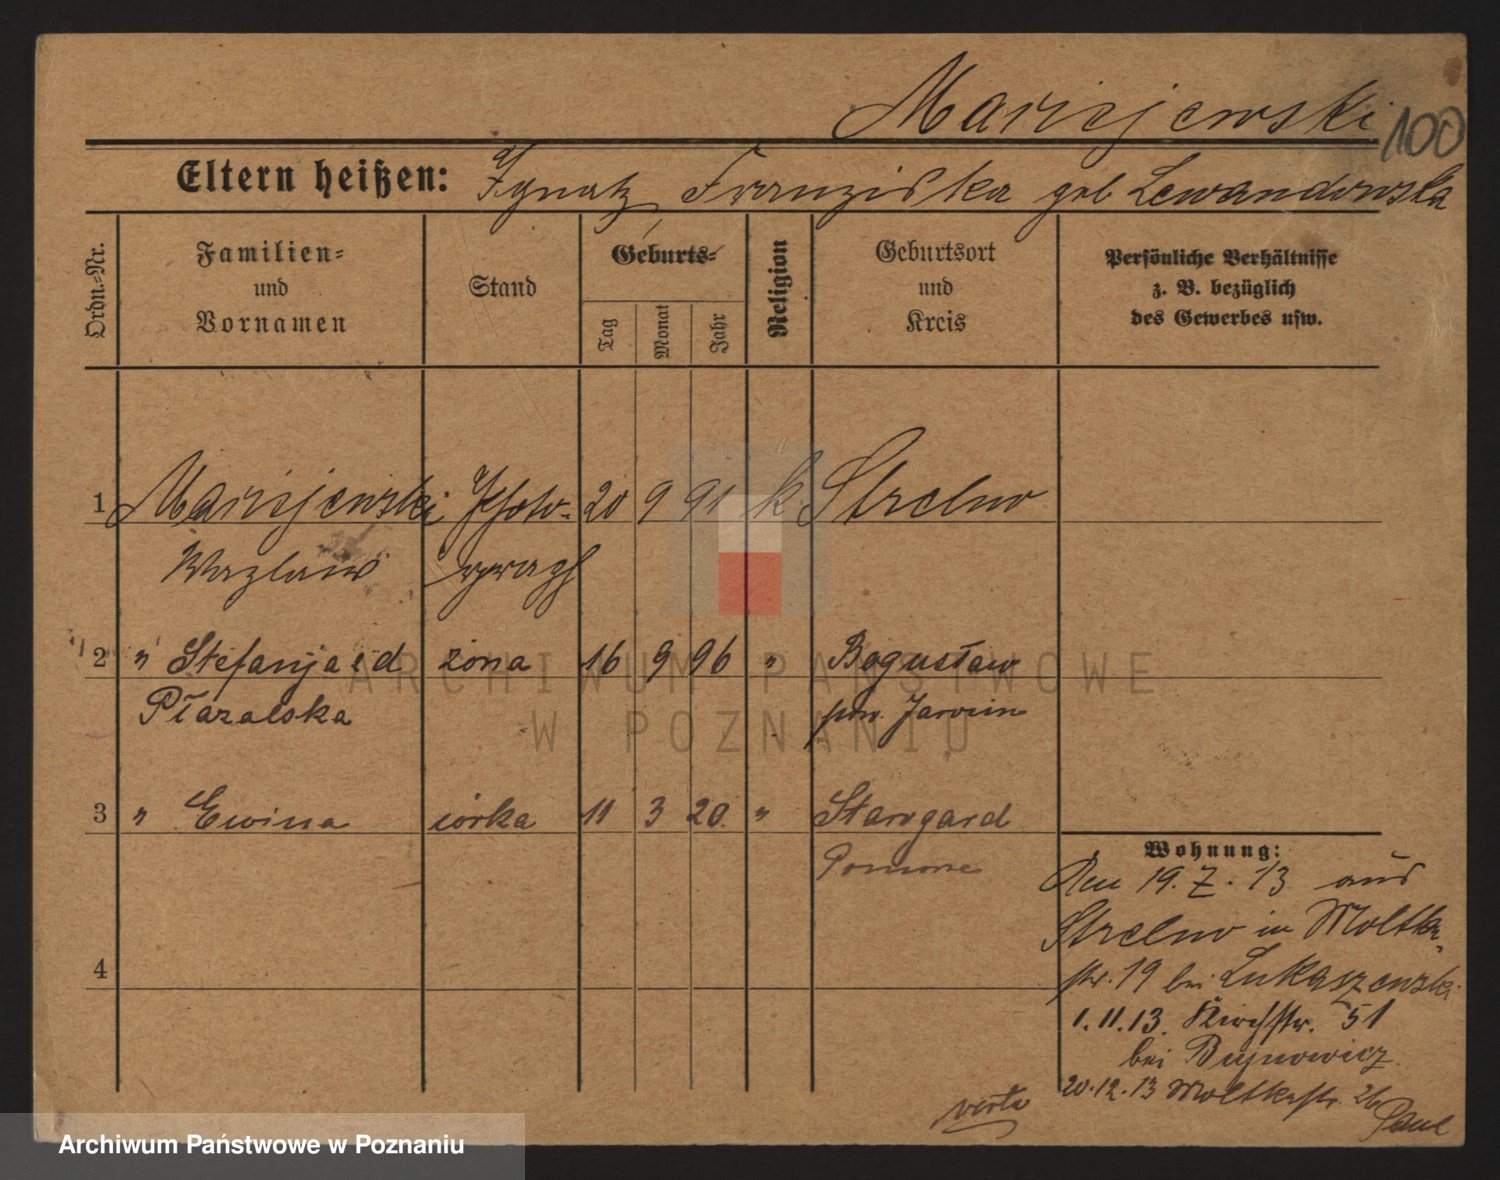 Marcijewski 100
Eltern heißen: Ignatz, Franziska geb Lewandowska
Ordn.-Nr.
Familien-
und
Vornamen
Stand
Geburts-
Tag
Monat
Jahr
Religion
Geburtsort
und
Kreis
Persönliche Verhältnisse
z. B. bezüglich
des Gewerbes usw.
1 Marcijewski Photo- 20 9 91 k Strelno
Wazlaw
2 " Stefanja żona 16 9 96 " Bogusław
pow. Jarocin
3 " córka 11 3 20 " Stargard
Pomorze
4
Wohnung:
Den 19. 7. 13 aus
Strelno in Moltke-
str. 19 bei Lukaszewski
1. 11. 13. Kirchstr. 51
bei
20. 12. 13 Moltkestr. 26
verte
ARCHIWUM PAŃSTWOWE
W POZNANIU
Archiwum Państwowe w Poznaniu